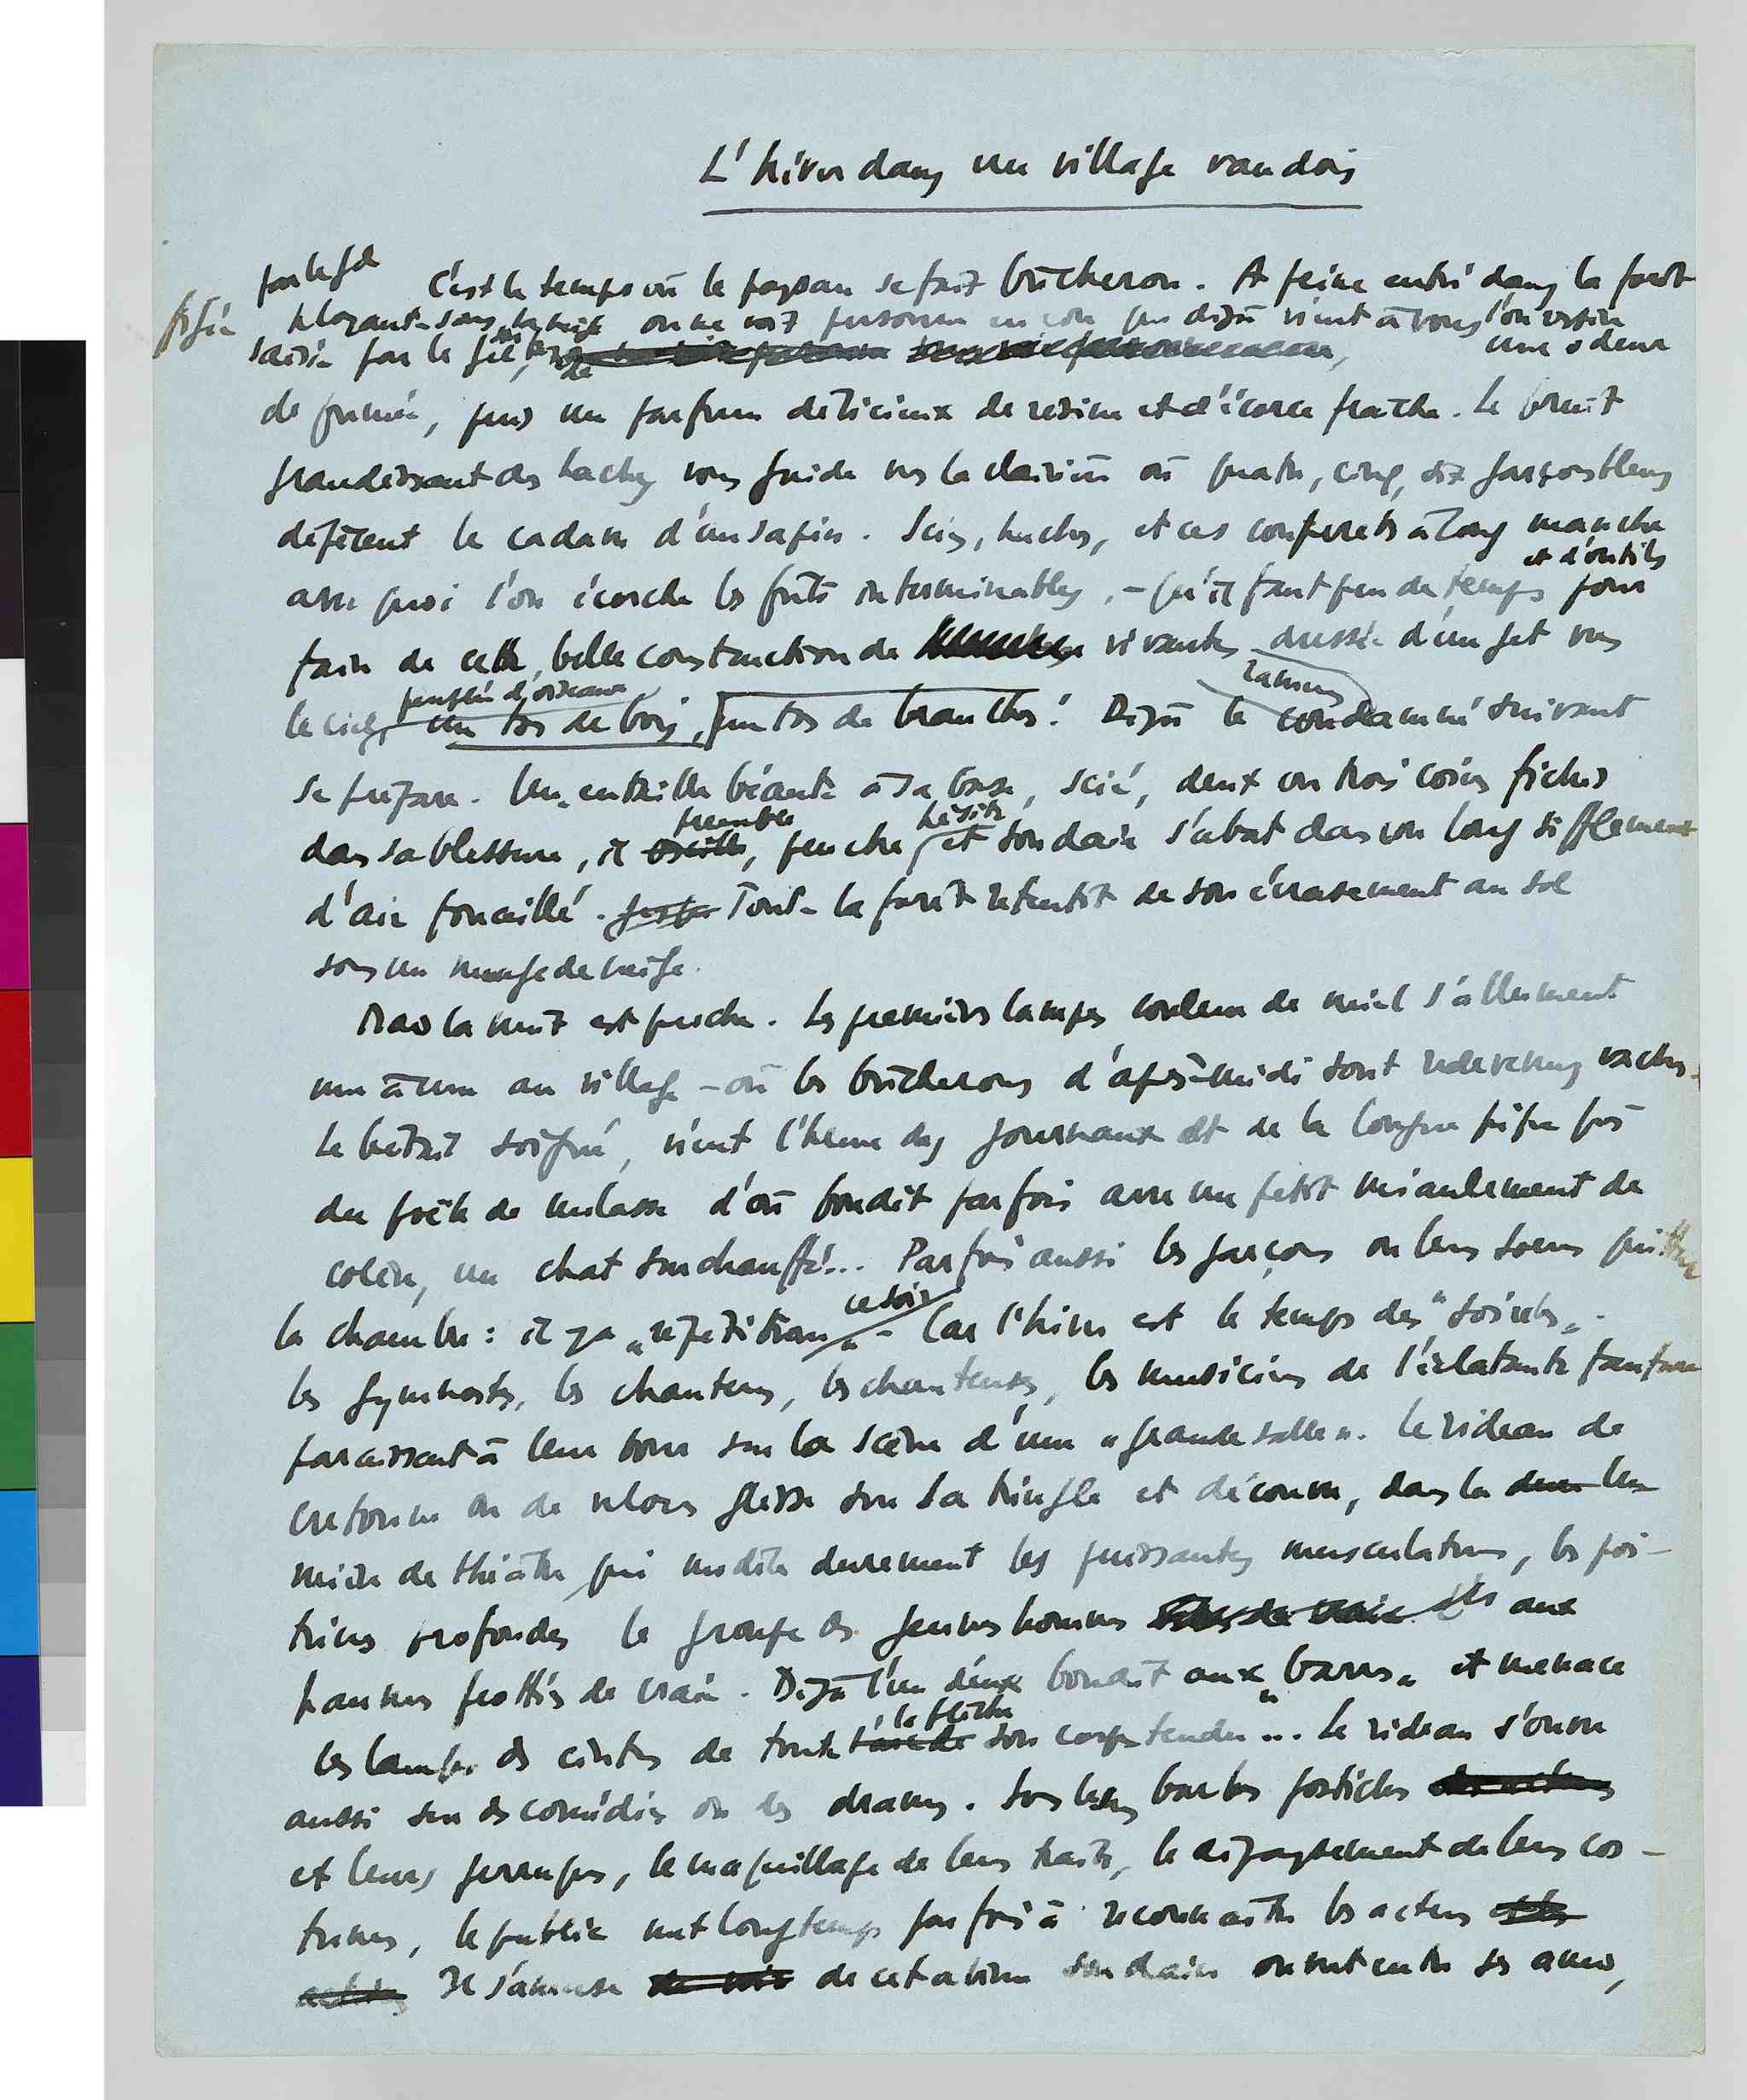 L'hiver dans un village vaudois
par le gel
C'est le temps où le paysan se fait bûcheron. A peine entré dans la forêt
figée, ployante sous la neige on ne voit personne encore que déjà vient à vous l'on respire
saisie par le gel, une odeur
de fumée, puis un parfum délicieux de résine et d'écorce fraîche. Le bruit
grandissant des haches vous guide vers la clairière où quatre, cinq, six garçons bleus
dépècent le cadavre d'un sapin. Scies, haches, et ces couperets à long manche
et d'outils
avec quoi l'on écorche les fûts interminables, – qu'il faut peu de temps pour
faire de cette belle construction de vivantes dressée d'un jet vers
peuplée d'oiseaux ramures
le ciel, un tas de bois, un tas de branches! Déjà le condamné suivant
se prépare. Une entaille béante à sa base, scié, deux ou trois coins fichés
tremble hésite
dans sa blessure, il oscille, penche et soudain s'abat dans un long sifflement
d'air fouaillé. Toute la forêt retentit de son écrasement au sol
sous un nuage de neige.
Mais la nuit est proche. Les premières lampes couleur de miel s'allument
une à une au village – où les bûcherons d'après-midi sont redevenus vachers.
Le bétail soigné, vient l'heure des journaux et de la longue pipe près
du poêle de molasse d'où bondit parfois avec un petit miaulement de
colère, un chat surchauffé... Parfois aussi les garçons ou leurs sœurs quittent
ce soir
la chambre : il y a "répétition" – Car l'hiver est le temps des "soirées".
Les gymnastes, les chanteurs, les chanteuses, les musiciens de l'éclatante fanfare
paraissent à leur tour sur la scène d'une "grande salle". Le rideau de
cretonne ou de velours glisse sur sa tringle et découvre, dans la dure lu-
mière de théâtre qui modèle durement les puissantes musculatures, les poi-
trines profondes le groupe des jeunes hommes aux
paumes frottées de craie. Déjà l'un d'eux bondit aux "barres" et menace
la flèche
les lampes des cintres de toute l'arc de son corps tendu... Le rideau s'ouvre
aussi sur des comédies ou des drames. Sous leurs barbes postiches des acteurs
et leurs perruques, le maquillage de leurs traits, le déguisement de leurs cos-
tumes, le public met longtemps parfois à reconnaître les acteurs
Il s'amuse de voir de cet abîme soudain ouvert entre ses amis,